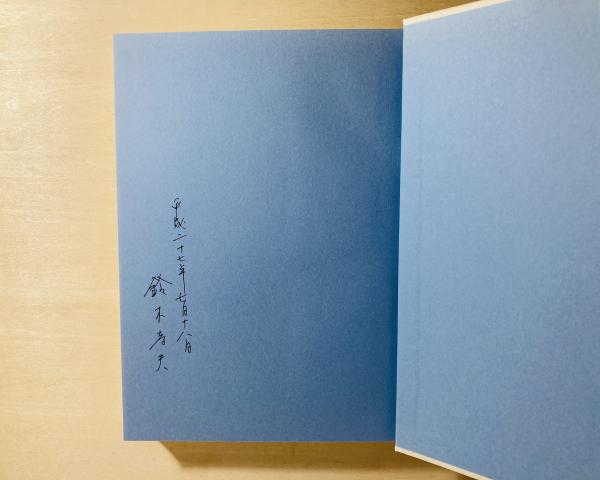 平成二十七年七月十八日
鈴木孝夫